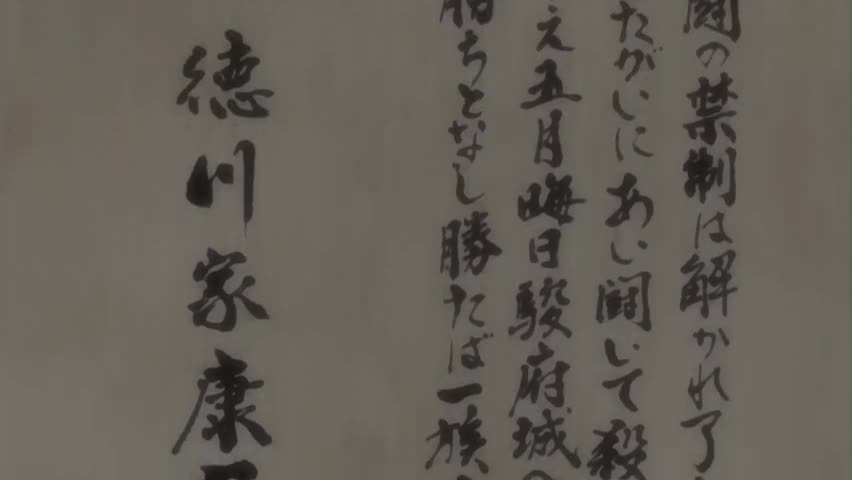 闘の禁制は解かれ了
たがいにあい闘いて殺
え五月晦日駿府城へ
勝ちとなし勝たば一族
徳川家康